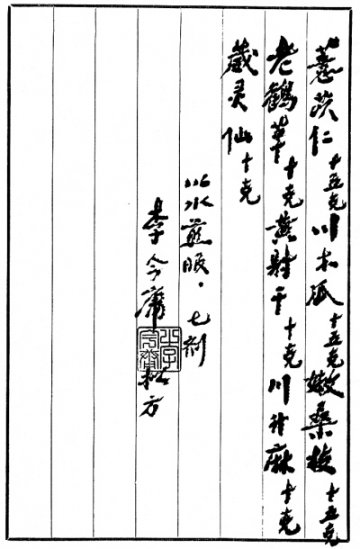 薏苡仁十五克川木瓜十五克嫩桑枝十五克
老鹤草十克黄射干十克川升麻十克
葳灵仙十克
以水煎服。七剂
李今庸拟方